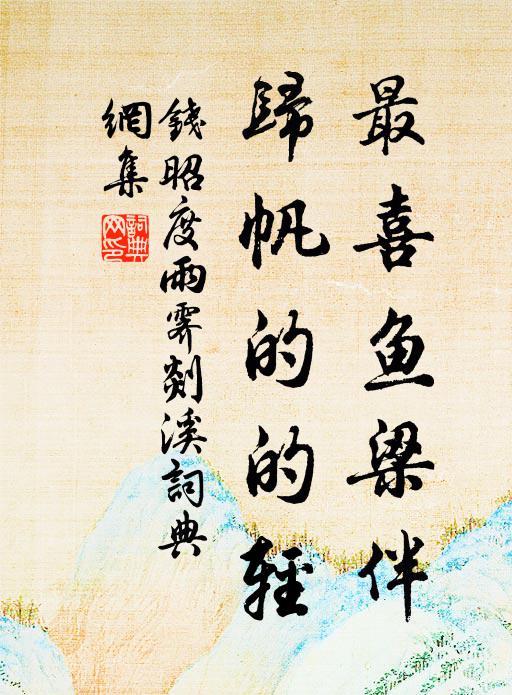 最喜鱼梁伴
歸帆的的輕
錢昭度雨霽剡溪詞典
網集
詞典网印